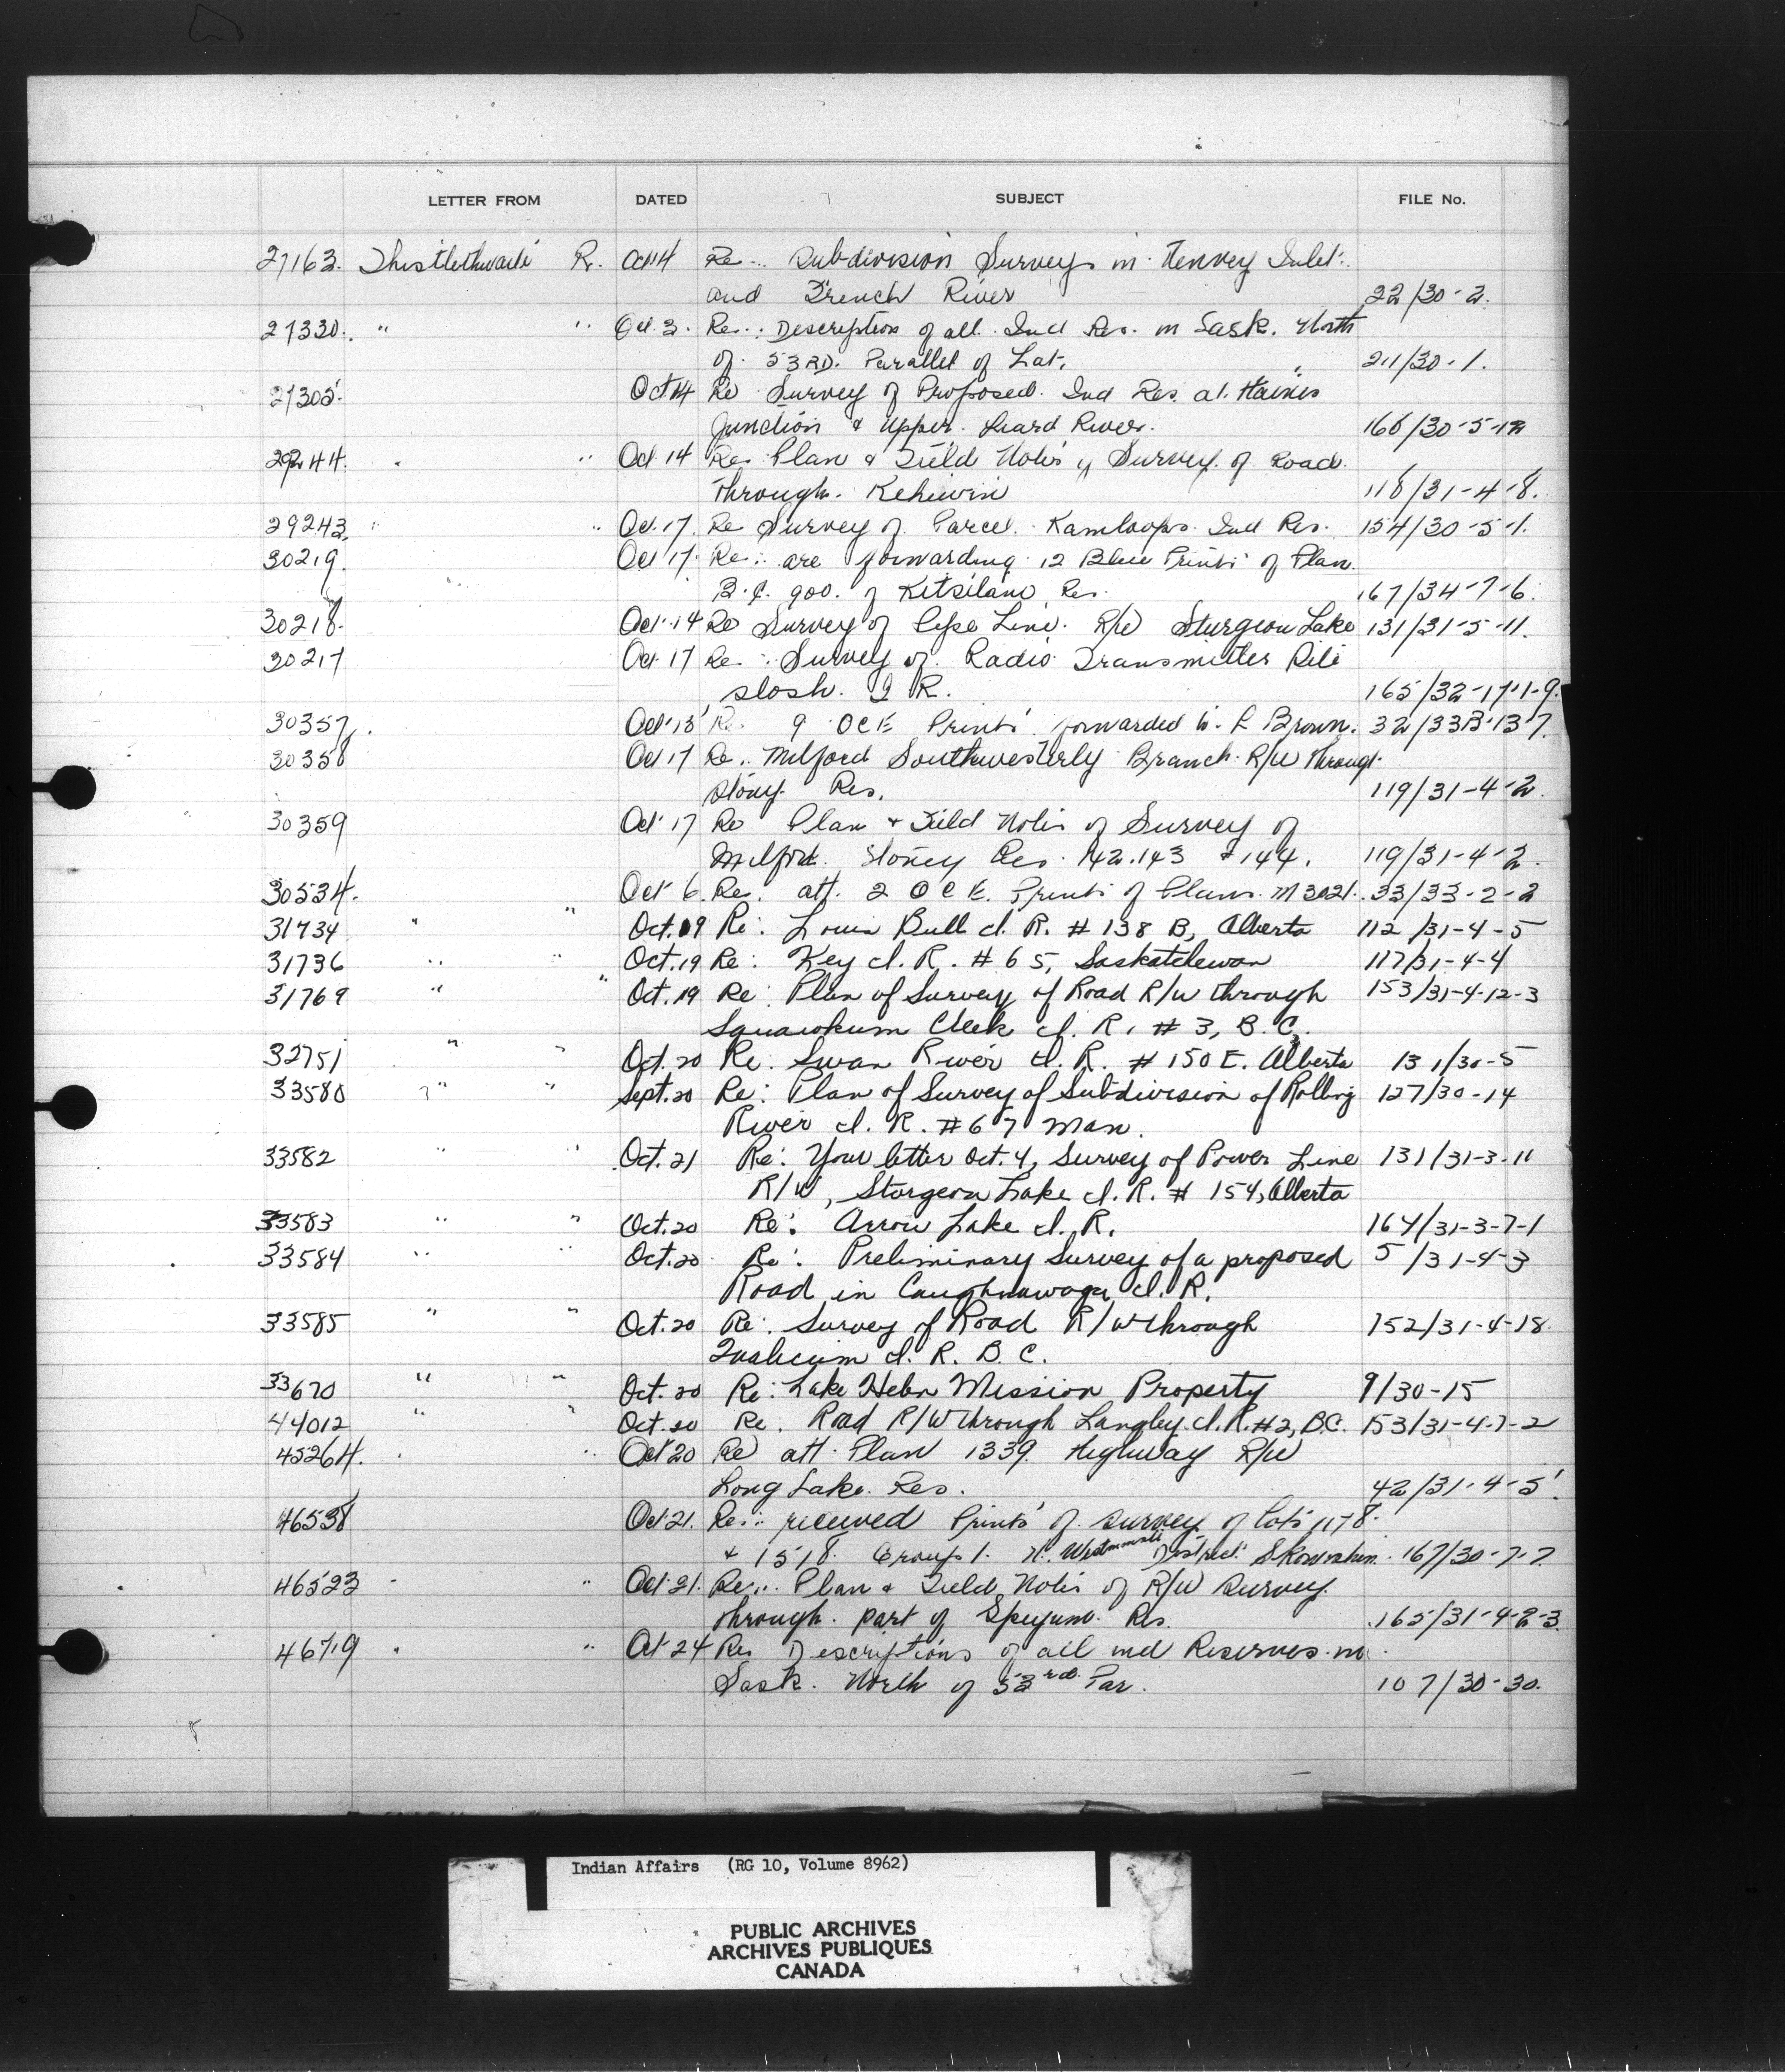 LETTER FROM DATED SUBJECT FILE No.
27163. Thistlethwaite R. Oct 14 Re.. Subdivision Surveys in Henvey Inlet
and French River 22/30-2.
27330. " " Oct. 3. Re.. Description of all Ind Res. in Sask. North
of 53RD. Parallel of Lat. 211/30-1.
27305. Oct 14 Re Survey of Proposed Ind Res. at. Haines
Junction & Upper Liard River. 166/30-5-12
29244. " Oct 14 Re Plan & Field Notes of Survey of Road
through Kehiwin 118/31-4-8.
29243. " " Oct. 17. Re Survey of Parcel. Kamloops Ind Res. 154/30-5-1.
30219. Oct 17. Re.. are forwarding 12 Blue Prints of Plan
B.C. 900. of Kitsilano Res. 167/34-7-6.
30218. Oct. 14 Re Survey of Pipe Line. R/W Sturgeon Lake 131/31-5-11.
30217 Oct. 17 Re.. Survey of Radio Transmitter Site
slosh. I R. 165/32-17-1-9.
30357. Oct. 18 Re. 9 OCE Prints forwarded to. L Brown. 32/33B-13-7.
30358 Oct 17 Re.. Milford Southwesterly Branch R/W through
Stony Res. 119/31-4-2.
30359 Oct 17 Re Plan & Field Notes of Survey of
Milford. Stoney Res. 142.143 & 144. 119/31-4-2.
30534. Oct 6. Re. att. 2 OCE. Prints of Plans. M3021. 33/33-2-2
31734 " " Oct. 19 Re: Louis Bull I. R. # 138 B, Alberta 112/31-4-5
31736 " " Oct. 19 Re: Key I. R. # 65, Saskatchewan 117/31-4-4
31769 " " Oct. 19 Re: Plan of Survey of Road R/W through 153/31-4-12-3
Squawkum Creek I. R. # 3, B.C.
32751 " " Oct. 20 Re: Swan River I. R. # 150 E. Alberta 131/30-5
33580 " " Sept. 20 Re: Plan of Survey of Subdivision of Rolling 127/30-14
River I. R. # 67 Man.
33582 " " Oct. 21 Re: Your letter Oct. 4, Survey of Power Line 131/31-3-11
R/W, Sturgeon Lake I. R. # 154, Alberta
33583 " " Oct. 20 Re: Arrow Lake I. R. 164/31-3-7-1
33584 " " Oct. 20 Re: Preliminary Survey of a proposed 5/31-4-3
Road in Caughnawaga I. R.
33585 " " Oct. 20 Re: Survey of Road R/W through 152/31-4-18
Qualicum I. R. B. C.
33670 " " Oct. 20 Re: Lake Helen Mission Property 9/30-15
44012 " " Oct. 20 Re. Road R/W through Langley I. R. #2, B.C. 153/31-4-7-2
45264. " " Oct 20 Re att Plan 1339. Highway R/W
Long Lake. Res. 42/31-4-5.
46538 Oct. 21. Re.. received Prints of survey of lots 1178.
& 1518. Group 1. N. Westminster District. Skowishin. 167/30-7-7
46523 " " Oct. 21. Re.. Plan & Field Notes of R/W Survey
through part of Spuzzum Res. 165/31-4-2-3.
46719 " " Oct 24 Re Descriptions of all ind Reserves in
Sask. North of 53rd Par. 107/30-30.
Indian Affairs (RG 10, Volume 8962)
PUBLIC ARCHIVES
ARCHIVES PUBLIQUES
CANADA